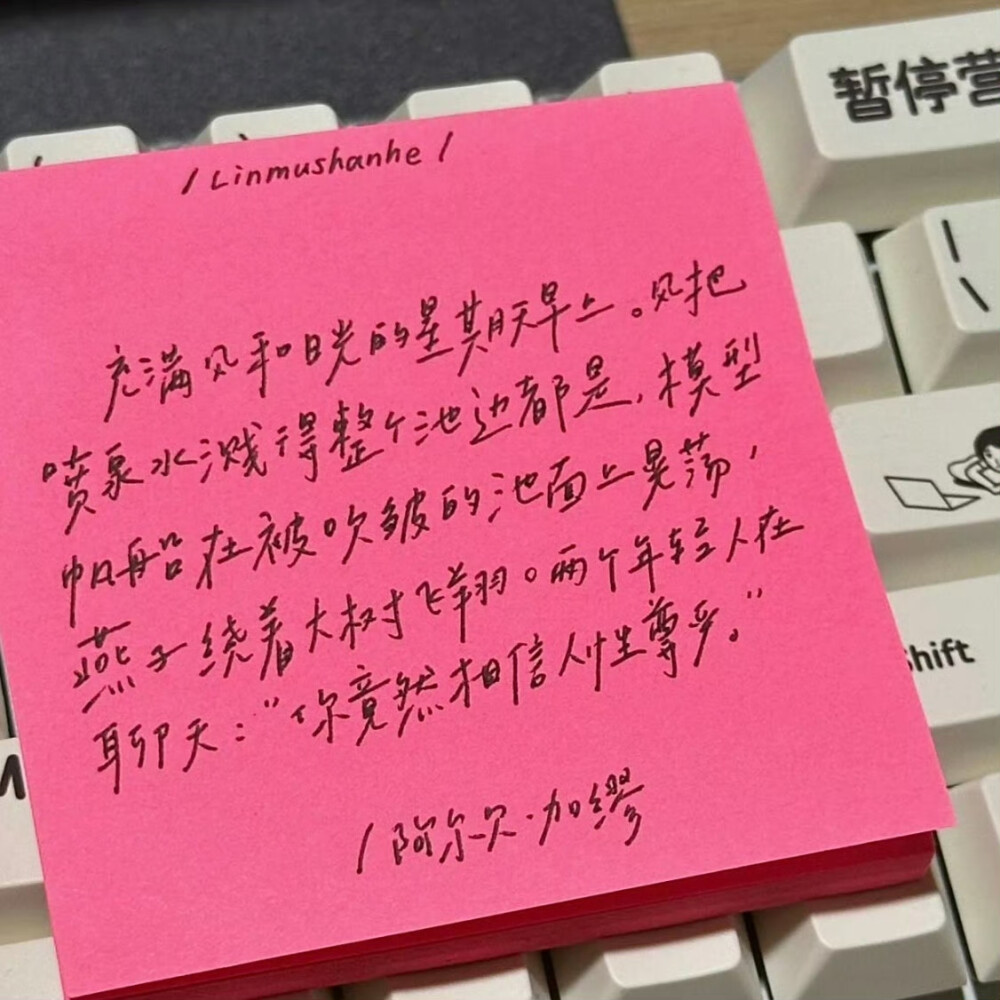 暂停营
/ Linmushanhe /
充满风和日光的星期天早上。风把
喷泉水溅得整个池边都是,模型
帆船在被吹皱的池面上晃荡,
燕子绕着大树飞翔。两个年轻人在
聊天:“你竟然相信人性尊严。”
/ 阿尔贝·加缪
\
shift
M